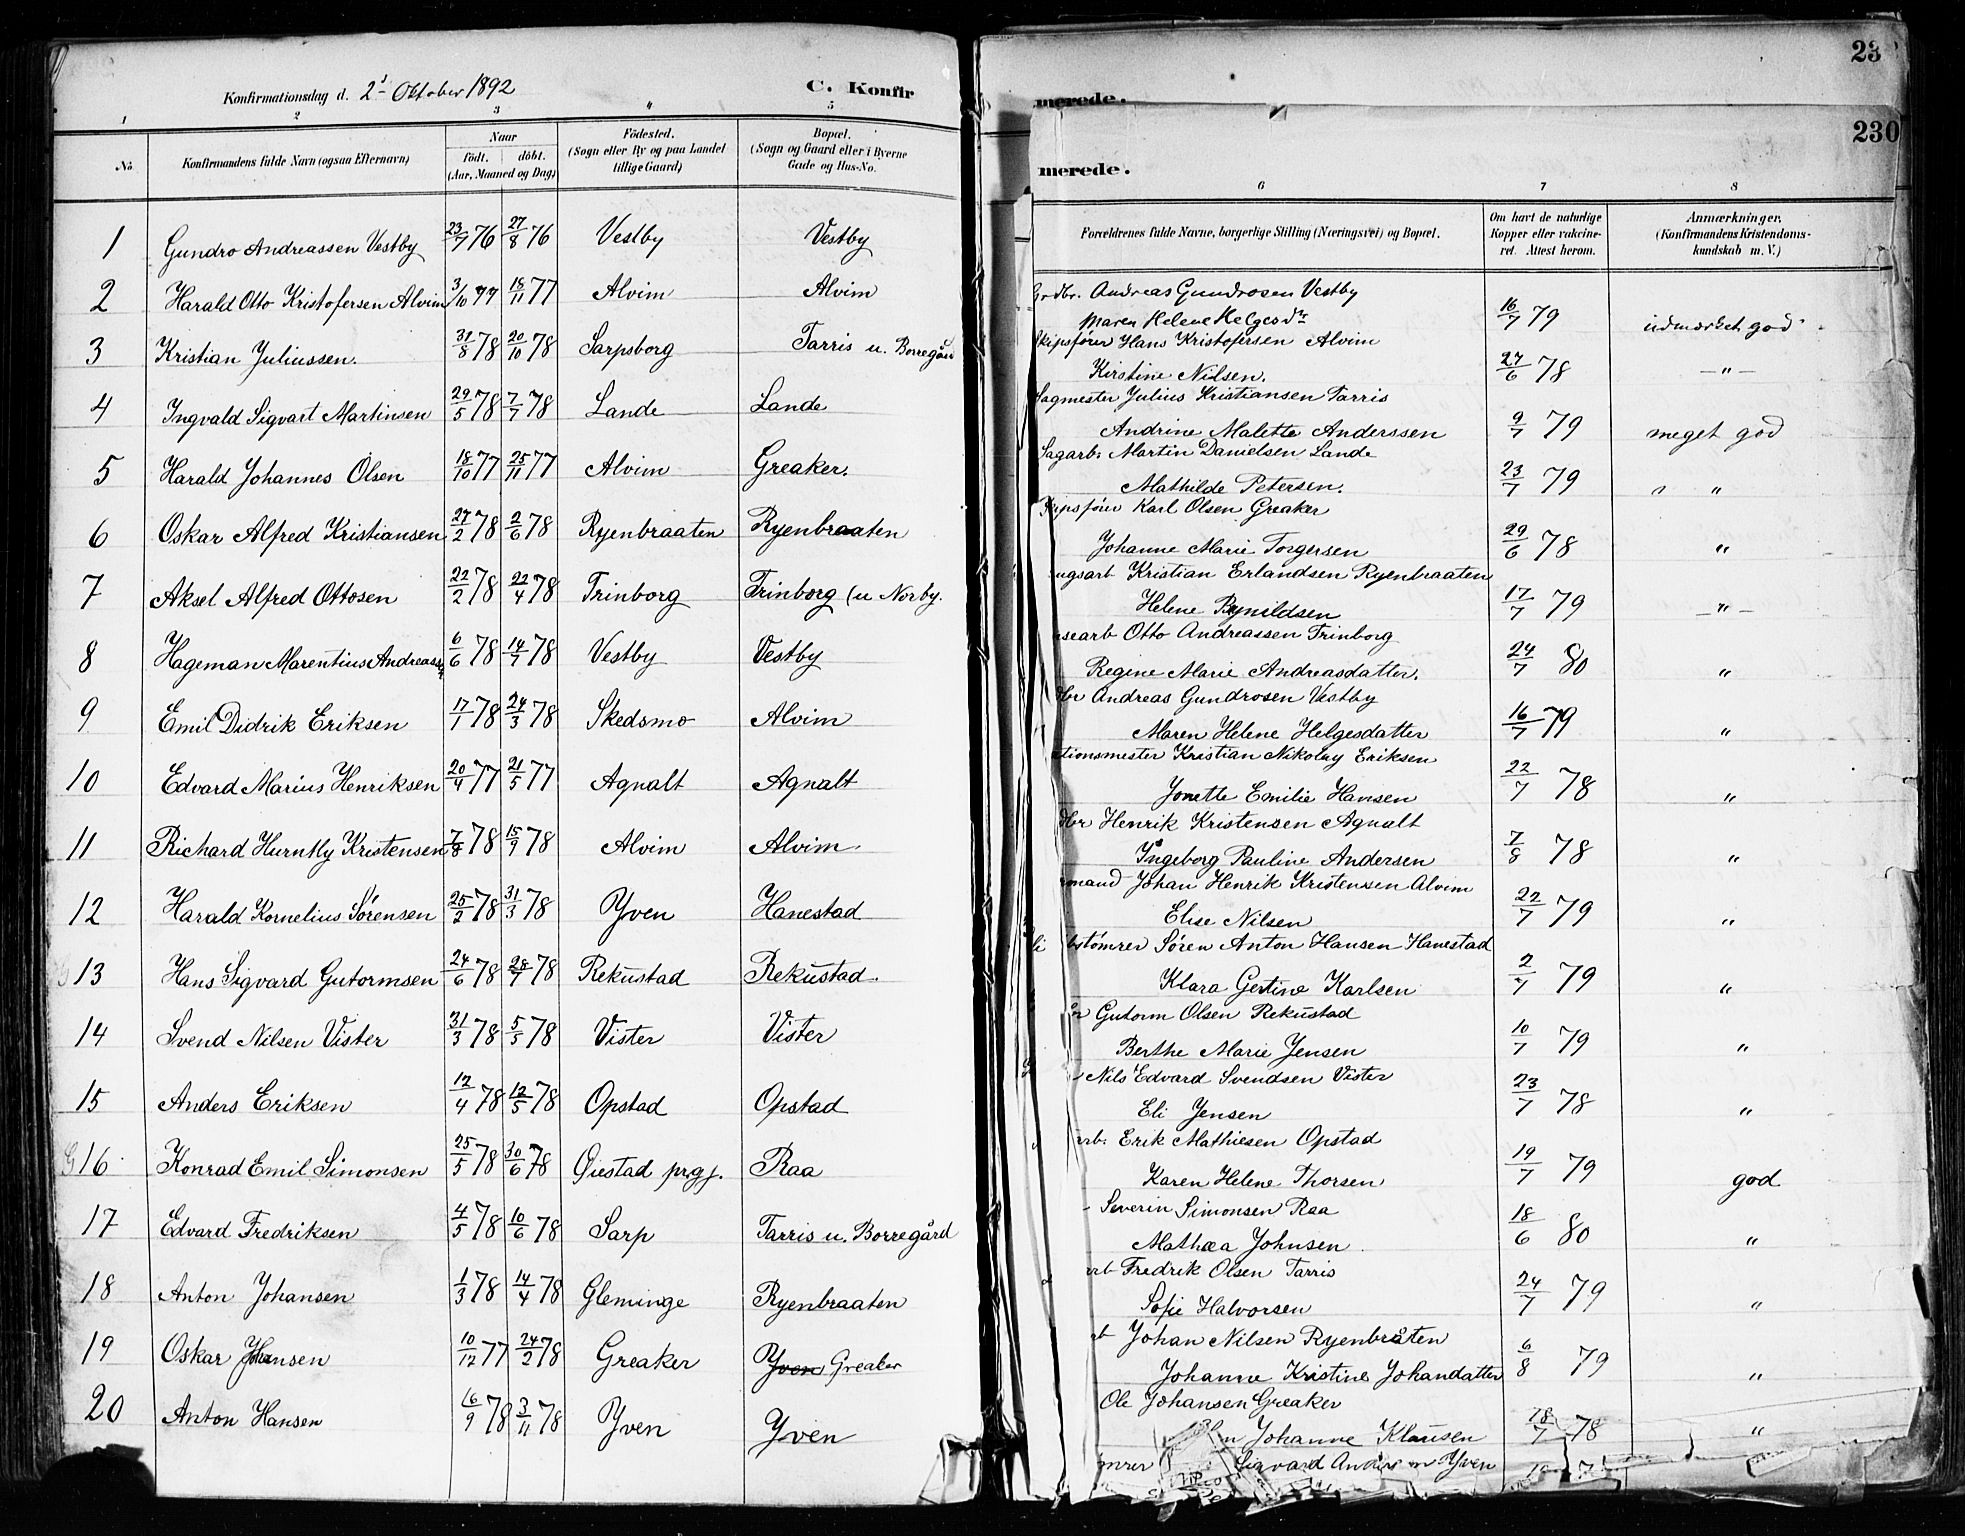 Konfirmationsdag d. 2' Oktober 1892
C. Konfir
1 2 3 " 5
No
Konfirmandens fulde Navn (ogsaa Efternavn)
Naar
födt. döbt.
(Aar, Maaned og Dag)
Födested.
(Sogn eller By og paa Landet
tillige Gaard)
Bopæl.
(Sogn og Gaard eller i Byerne
Gade og Hus-No.
1 Gundro Andreassen Vestby 23/7 76 27/8 76 Vestby Vestby
2 Harald Otto Kristofersen Alvim 3/10 77 18/11 77 Alvim Alvim
3 Kristian Juliussen. 31/8 78 20/10 78 Sarpsborg Tarris u. Borregård
4 Ingvald Sigvart Martinsen 29/5 78 7/7 78 Lande Lande
5 Harald Johannes Olsen 18/10 77 25/11 77 Alvim Greaker.
6 Oskar Alfred Kristiansen 27/2 78 2/6 78 Ryenbraaten Ryenbraaten
7 Aksel Alfred Ottosen 22/2 78 22/4 78 Trinborg Trinborg (u Norby.
8 Hageman Marentius Andreassen 6/6 78 14/7 78 Vestby Vestby
9 Emil Didrik Eriksen 17/1 78 24/3 78 Skedsmo Alvim
10 Edvard Marius Henriksen 20/4 77 21/5 77 Agnalt Agnalt
11 Richard Hurntly Kristensen 7/8 78 15/9 78 Alvim Alvim.
12 Harald Kornelius Sørensen 25/2 78 31/3 78 Yven Hanestad
13 Hans Sigvard Gutormsen 24/6 78 28/7 78 Rekustad Rekustad.
14 Svend Nilsen Vister 31/3 78 5/5 78 Vister Vister
15 Anders Eriksen 12/4 78 12/5 78 Opstad Opstad
16 Konrad Emil Simonsen 25/5 78 30/6 78 Øiestad prgj. Raa
17 Edvard Fredriksen 4/5 78 10/6 78 Sarp Tarris u. Borregård
18 Anton Johansen 1/3 78 14/4 78 Gleminge Ryenbraaten
19 Oskar Johansen 10/12 77 24/2 78 Greaker Yven Greaker
20 Anton Hansen 16/9 78 3/11 78 Yven Yven
merede.
23
230
merede.
6 7 8
Forældrenes fulde Navne, borgerlige Stilling (Næringsvei) og Bopæl.
Om havt de naturlige
Kopper eller vakcine-
ret. Attest herom.
Anmærkninger.
(Konfirmandens Kristendoms-
kundskab m. V.)
Grdbr. Andreas Gundrosen Vestby
Maren Helene Helgesdr 16/7 79 udmærket god
Skipsfører Hans Kristofersen Alvim
Kirstine Nilsen. 27/6 78 — " —
Sagmester Julius Kristiansen Tarris
Andrine Malette Anderssen 9/7 79 meget god
Sagarb. Martin Danielsen Lande
Mathilde Petersen. 23/7 79 " "
kipsfører Karl Olsen Greaker
Johanne Marie Torgersen 29/6 78 "
ugsarb Kristian Erlandsen Ryenbraaten
Helene Bynildsen 17/7 79 — " —
searb Otto Andreassen Trinborg
Regine Marie Andreasdatter. 24/7 80 "
dbr Andreas Gundrosen Vestby
Maren Helene Helgesdatter 16/7 79 "
tionsmester Kristian Nikolay Eriksen
Jonette Emilie Hansen 22/7 78 "
dbr Henrik Kristensen Agnalt
Ingeborg Pauline Andersen 7/8 78 "
mand Johan Henrik Kristensen Alvim
Elise Nilsen 22/7 79 "
bstømrer Søren Anton Hansen Hanestad
Klara Gertine Karlsen 2/7 79 "
Gutorm Olsen Rekustad
Berthe Marie Jensen 10/7 79 "
Nils Edvard Svendsen Vister
Eli Jensen 23/7 78 "
arb. Erik Mathiesen Opstad
Karen Helene Thorsen 19/7 79 god
Severin Simonsen Raa
Mathea Johnsen 18/6 80 "
arb Fredrik Olsen Tarris
Sofie Halvorsen 24/7 79 "
Johan Nilsen Ryenbråten
Johanne Kristine Johandatter 6/8 79 "
Ole Johansen Greaker
Johanne Klausen 18/7 78 "
mrer Sigvard Yven